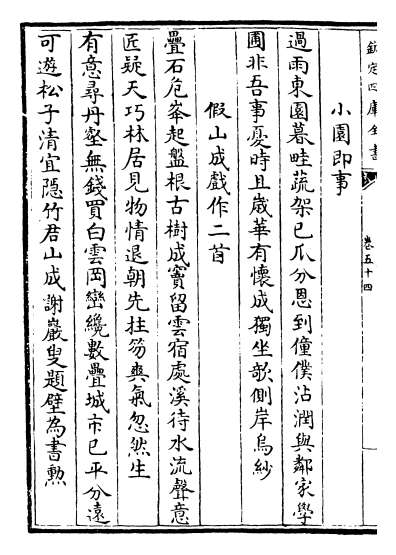 欽定四庫全書
卷五十四
小園即事
過雨東園暮畦蔬架已瓜分恩到僮僕沾潤與鄰家學
圃非吾事憂時且歲華有懷成獨坐欹側岸烏紗
假山成戲作二首
疊石危峯起盤根古樹成竇留雲宿處溪待水流聲意
匠疑天巧林居見物情退朝先拄笏爽氣忽然生
有意尋丹壑無錢買白雲岡巒纔數疊城市已平分遠
可遊松子清宜隠竹君山成謝巖叟題壁為書勲